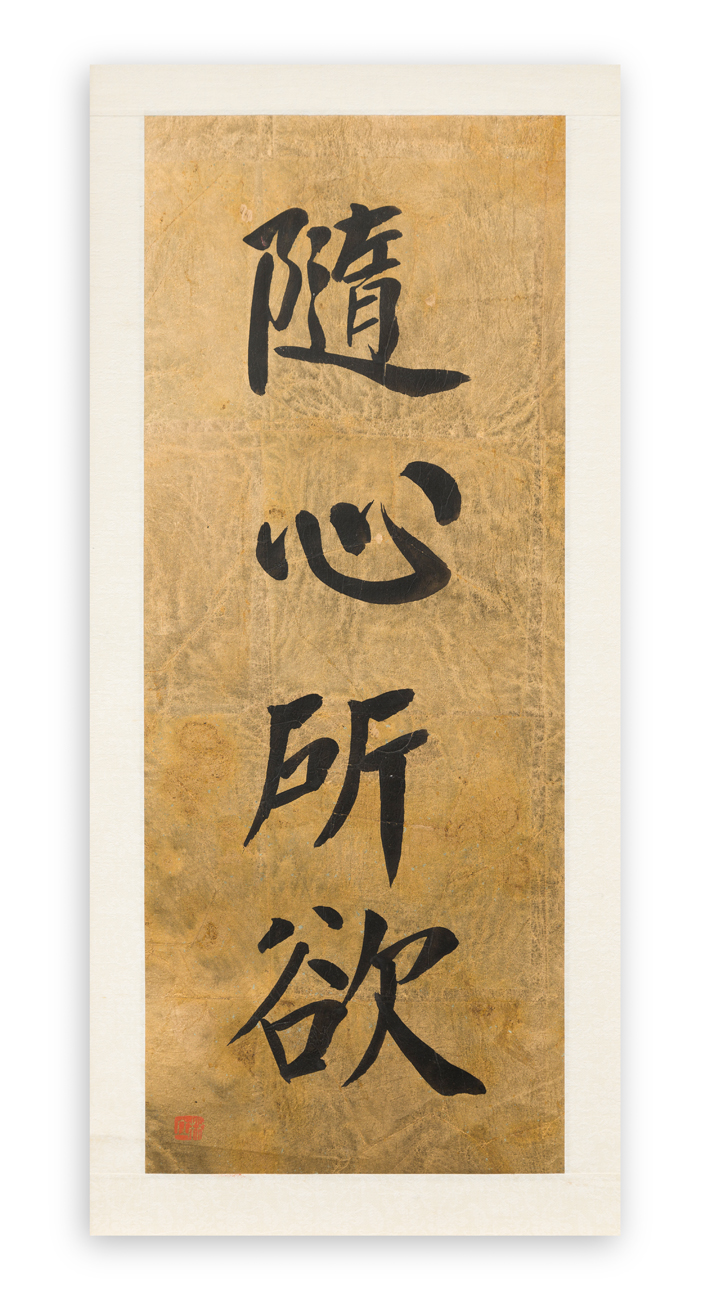 隨心所欲